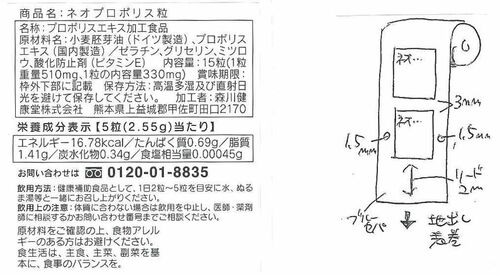 商品名：ネオプロポリス粒
名称：プロポリスエキス加工食品
原材料名：小麦胚芽油（ドイツ製造）、プロポリス
エキス（国内製造）／ゼラチン、グリセリン、ミツロ
ウ、酸化防止剤（ビタミンE） 内容量：15粒（1粒
重量510mg、1粒の内容量330mg） 賞味期限：
枠外下部に記載 保存方法：高温多湿及び直射日
光を避けて保存してください。 加工者：森川健
康堂株式会社 熊本県上益城郡甲佐町田口2170
栄養成分表示【5粒（2.55g）当たり】
エネルギー16.78kcal／たんぱく質0.69g／脂質
1.41g／炭水化物0.34g／食塩相当量0.00045g
お問い合わせは 0120-01-8835
飲用方法：健康補助食品として、1日2粒～5粒を目安に水、ぬる
ま湯等と一緒にお召し上がりください。
飲用上の注意：体質に合わない場合は飲用を中止し、医師・薬剤
師に相談するかお問い合わせ窓口にご連絡ください。
原材料をご確認の上、食物アレル
ギーのある方はお避けください。
食生活は、主食、主菜、副菜を基
本に、食事のバランスを。
ネオ...
3mm
ネオ...
1.5mm
1.5mm
リード
2m
地出し
表巻